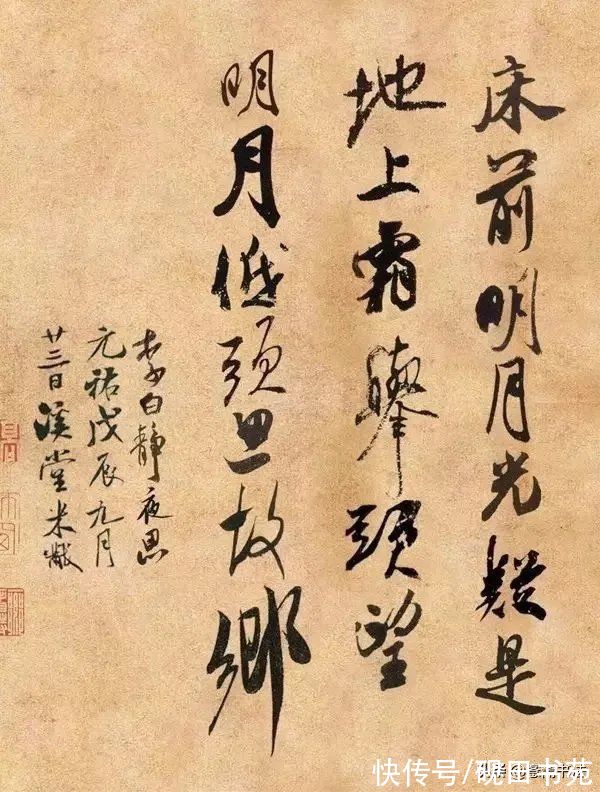 床前明月光疑是
地上霜舉頭望
明月低頭思故鄉
李白靜夜思
元祐戊辰九月
廿三日溪堂米黻
快传号/砚田书苑